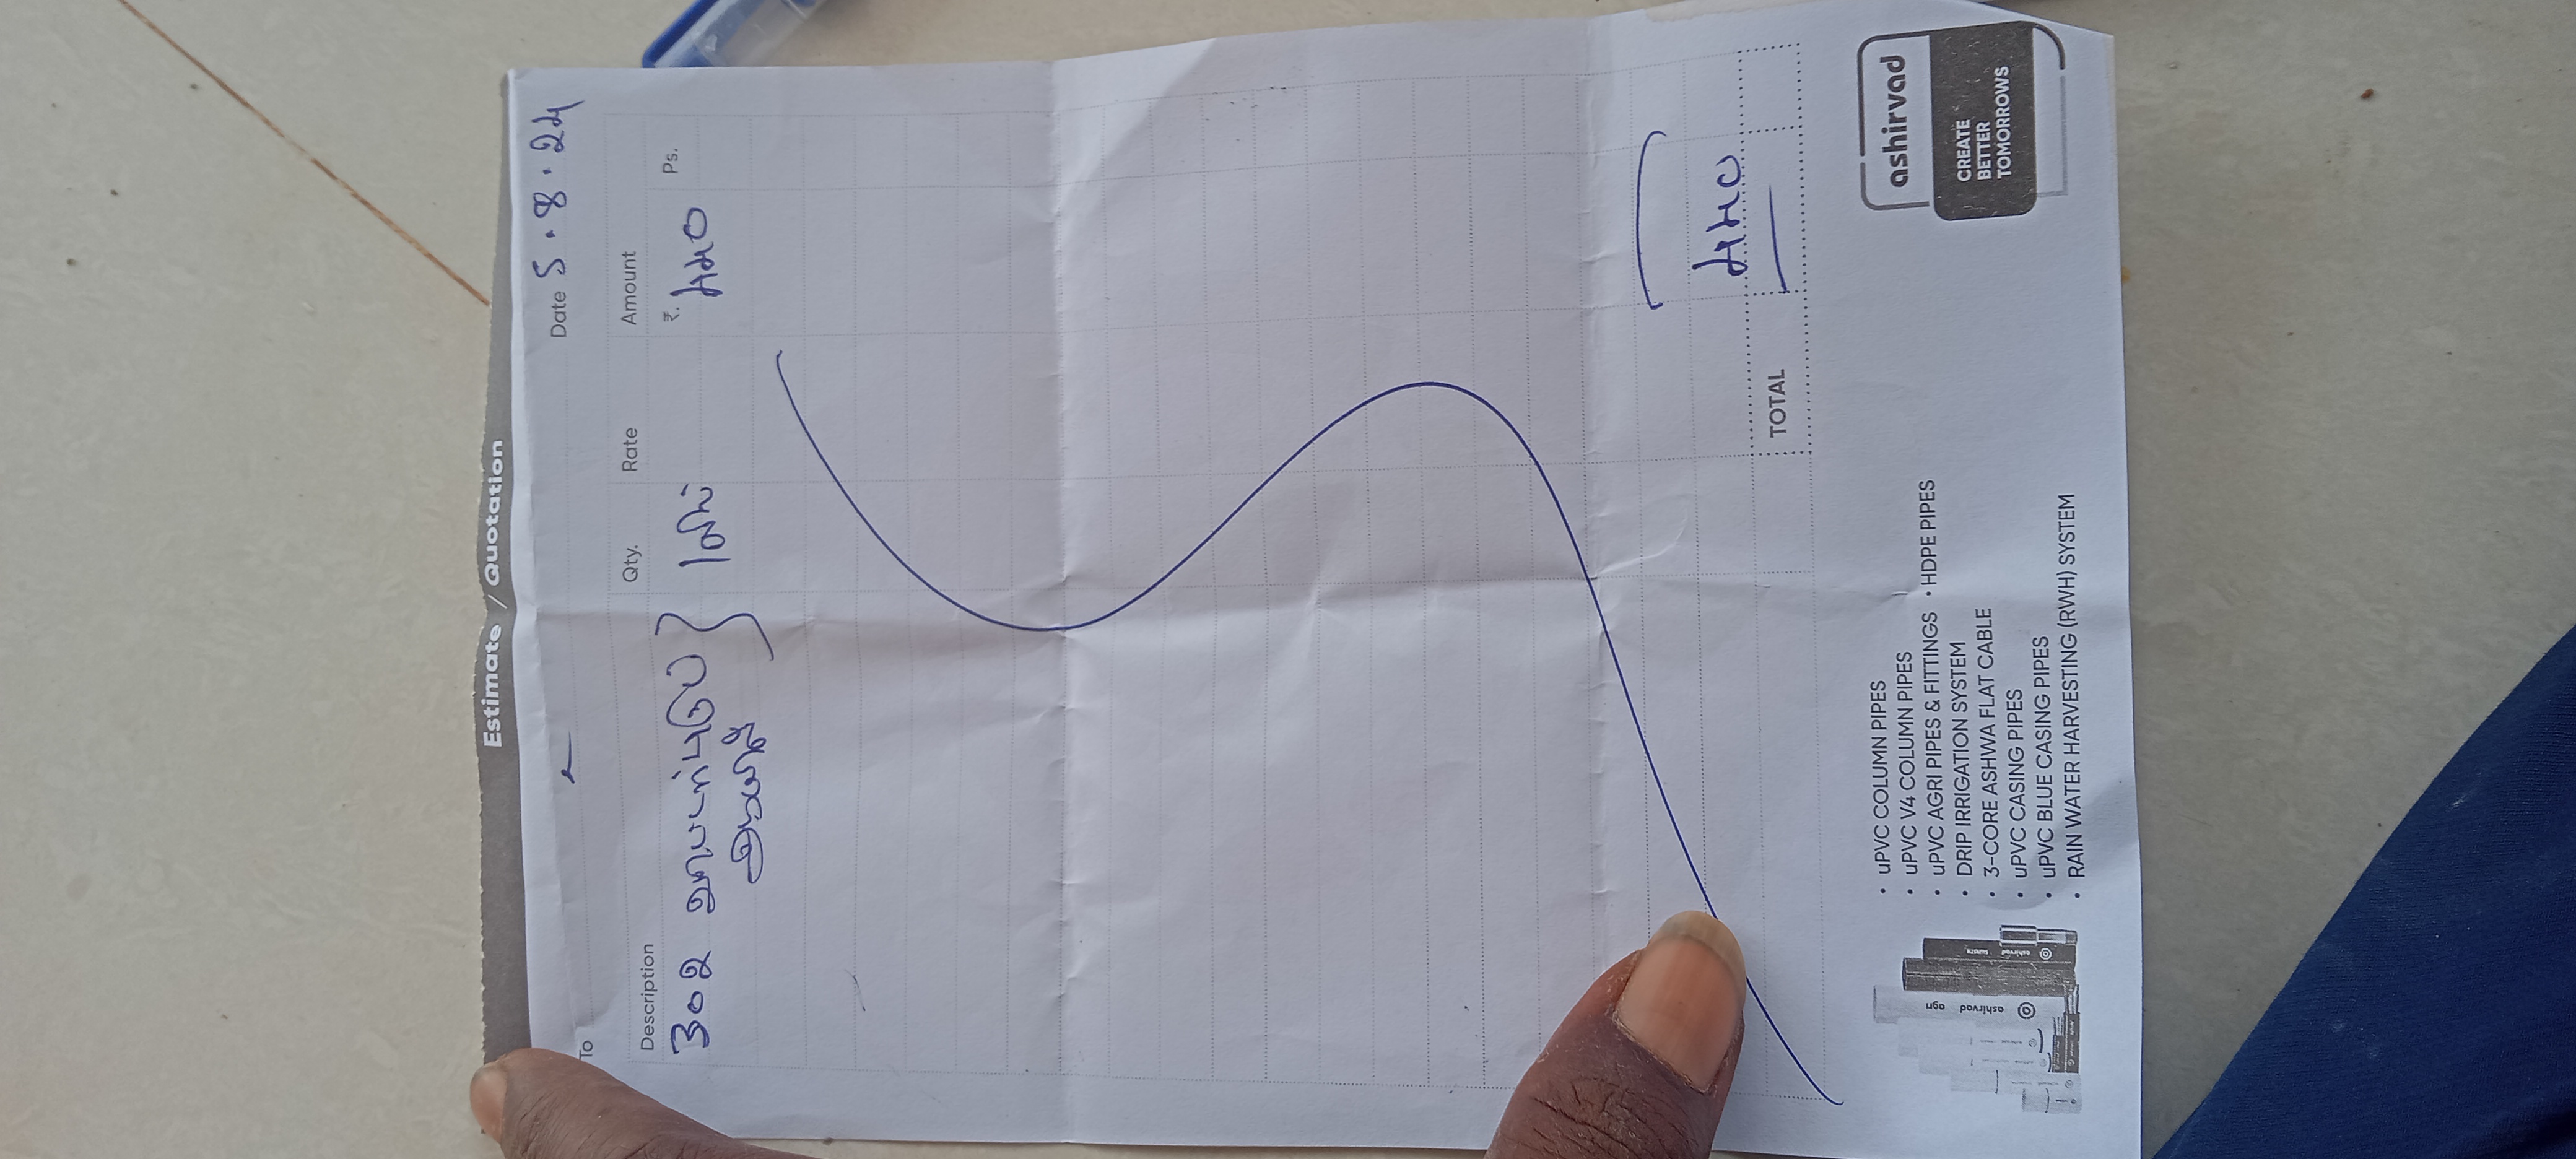 Estimate / Quotation
Date 5.8.24
To
Description Qty. Rate Amount
₹. Ps.
302 440
TOTAL 440
• uPVC COLUMN PIPES
• uPVC V4 COLUMN PIPES
• uPVC AGRI PIPES & FITTINGS • HDPE PIPES
• DRIP IRRIGATION SYSTEM
• 3-CORE ASHWA FLAT CABLE
• uPVC CASING PIPES
• uPVC BLUE CASING PIPES
• RAIN WATER HARVESTING (RWH) SYSTEM
ashirvad
CREATE
BETTER
TOMORROWS
ashirvad
agri
ashirvad